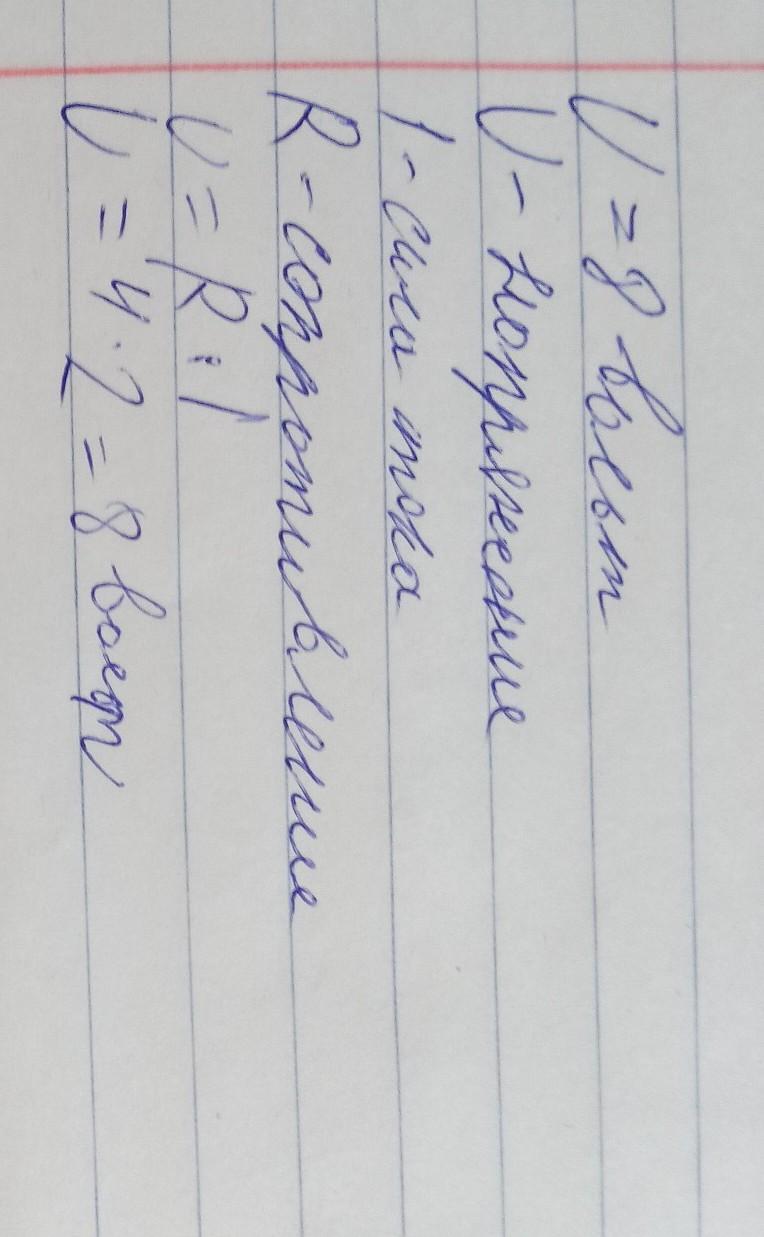 U = 8 вольт
U - напряжение
I - сила тока
R - сопротивление
U = R · I
U = 4 · 2 = 8 вольт